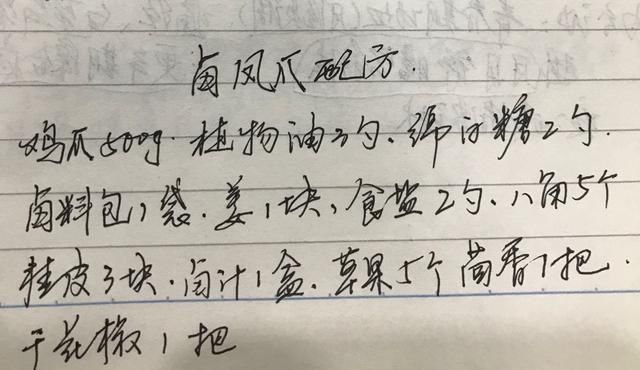 卤凤爪配方.
鸡爪500g. 植物油3勺、绵白糖2勺.
卤料包1袋、姜1块、食盐2勺、八角5个
桂皮3块、卤汁1盒、草果5个 茴香1把.
干花椒1把